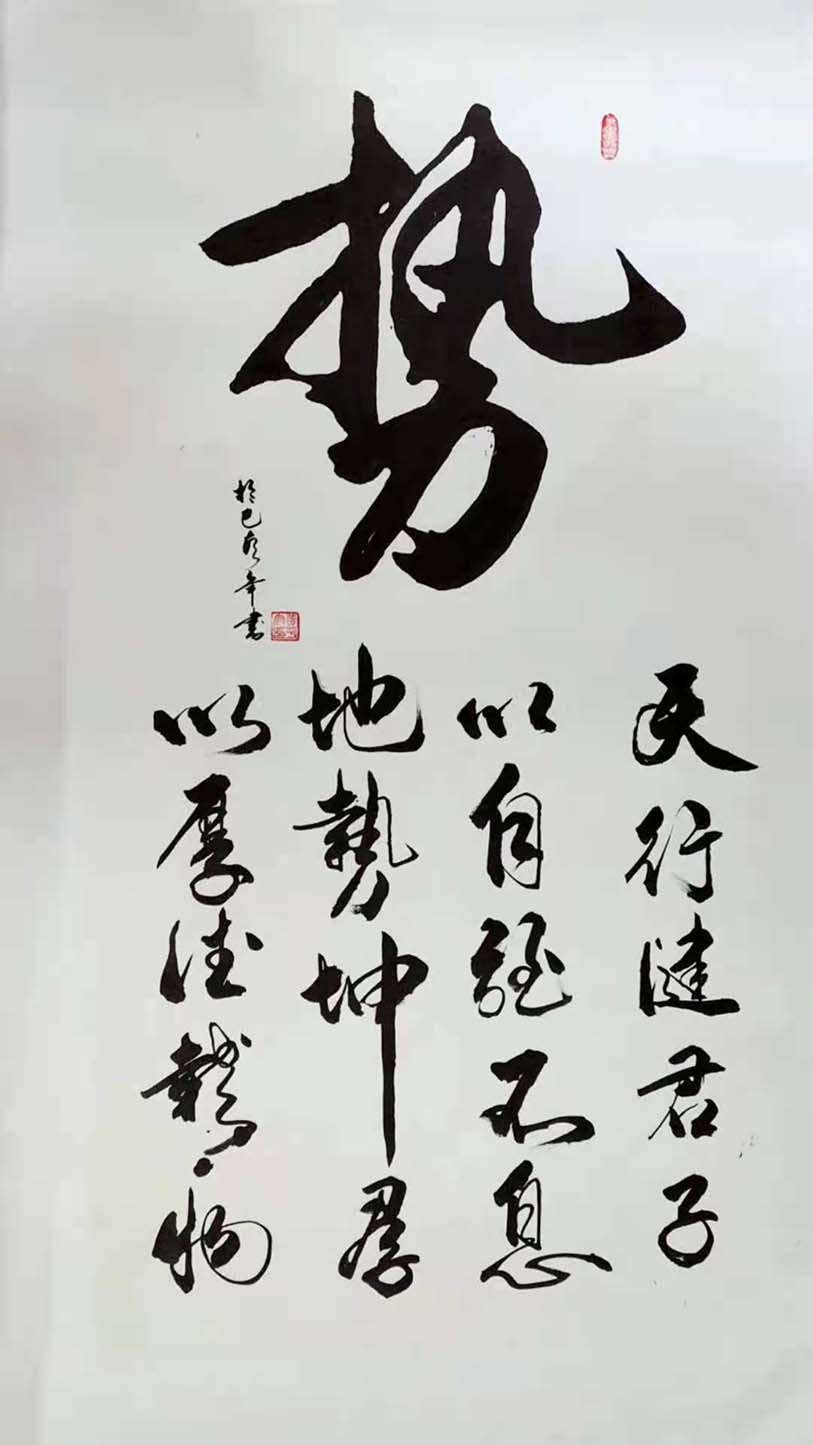 势
於己亥年書
天行健君子
以自强不息
地勢坤君子
以厚德載物